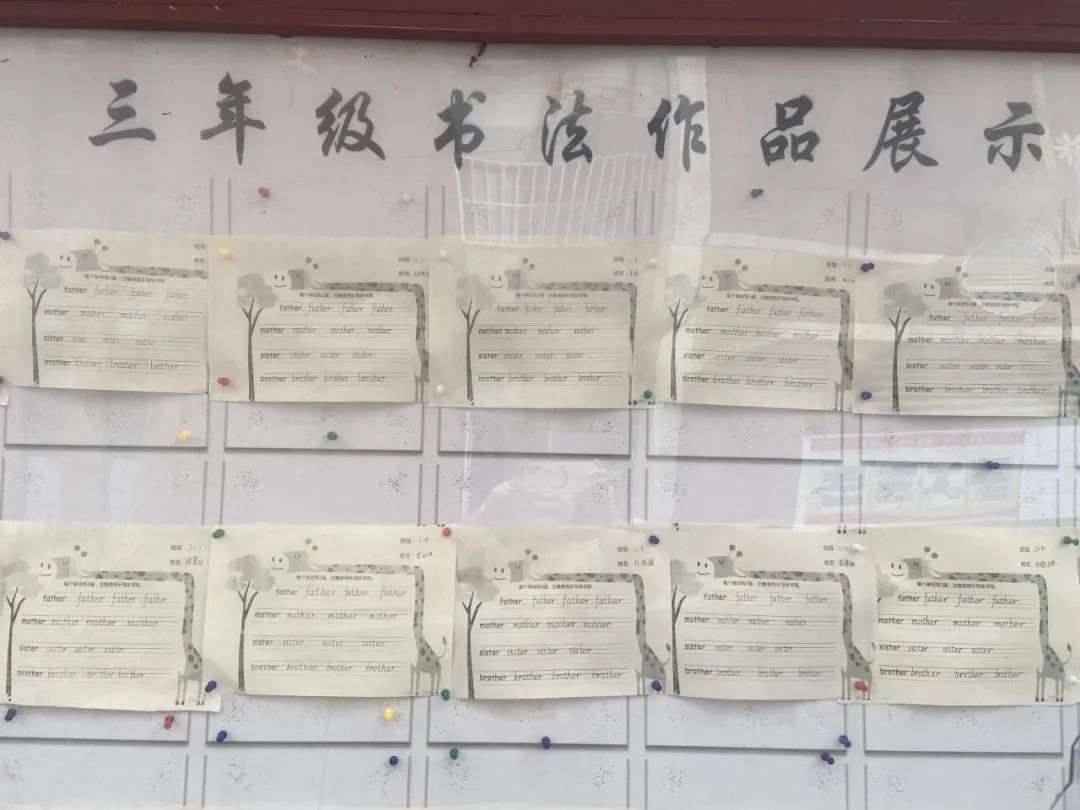 三年级书法作品展示
班级
姓名
每个单词写3遍，注意使用手写体书写。
father father father father
mother mother mother mother
sister sister sister sister
brother brother brother brother
班级
姓名
每个单词写3遍，注意使用手写体书写。
father father father father
mother mother mother mother
sister sister sister sister
brother brother brother brother
班级
姓名
每个单词写3遍，注意使用手写体书写。
father father father father
mother mother mother mother
sister sister sister sister
brother brother brother brother
班级
姓名
每个单词写3遍，注意使用手写体书写。
father father father father
mother mother mother mother
sister sister sister sister
brother brother brother brother
每个单词写3遍，注意使用手写体书写。
father father father father
mother mother mother mother
sister sister sister sister
brother brother brother brother
班级
姓名
每个单词写3遍，注意使用手写体书写。
father father father father
mother mother mother mother
sister sister sister sister
brother brother brother brother
班级
姓名
每个单词写3遍，注意使用手写体书写。
father father father father
mother mother mother mother
sister sister sister sister
brother brother brother brother
班级
姓名
每个单词写3遍，注意使用手写体书写。
father father father father
mother mother mother mother
sister sister sister sister
brother brother brother brother
班级
姓名
每个单词写3遍，注意使用手写体书写。
father father father father
mother mother mother mother
sister sister sister sister
brother brother brother brother
班级
姓名
每个单词写3遍，注意使用手写体书写。
father father father father
mother mother mother mother
sister sister sister sister
brother brother brother brother